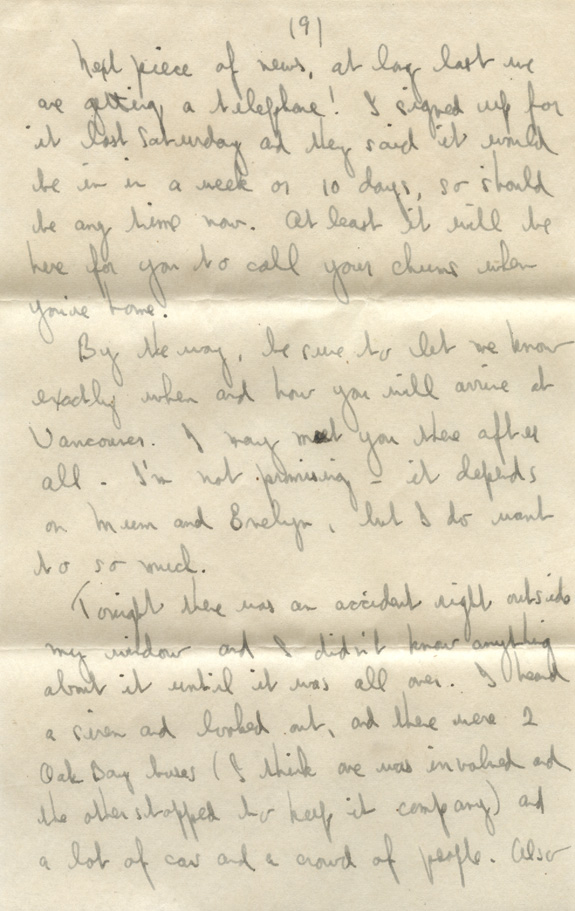 (9)
Next piece of news, at long last we
are getting a telephone! I signed up for
it last Saturday and they said it would
be in in a week or 10 days, so should
be any time now. At least it will be
here for you to call your chums when
you're home.
By the way, be sure to let me know
exactly when and how you will arrive at
Vancouver. I may meet you there after
all - I'm not promising - it depends
on Mum and Evelyn, but I do want
to so much.
Tonight there was an accident right outside
my window and I didn't know anything
about it until it was all over. I heard
a siren and looked out, and there were 2
Oak Bay buses (I think one was involved and
the other stopped to keep it company) and
a lot of cars and a crowd of people. Also